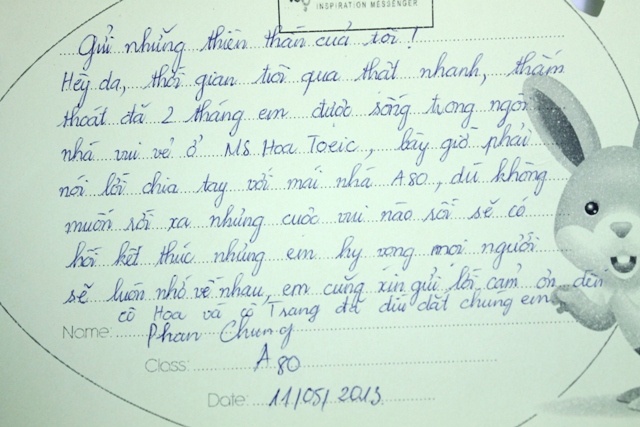 INSPIRATION MESSENGER
Gửi những thiên thần của tôi!
Hêy da, thời gian trôi qua thật nhanh, thấm
thoát đã 2 tháng em được sống trong ngôi
nhà vui vẻ ở MS Hoa Toeic, bây giờ phải
nói lời chia tay với mái nhà A80, dù không
muốn rời xa nhưng cuộc vui nào rồi sẽ có
hồi kết thúc nhưng em hy vọng mọi người
sẽ luôn nhớ về nhau, em cũng xin gửi lời cảm ơn đến
cô Hoa và cô Trang đã dìu dắt chúng em
Name: Phan Chung
Class: A80
Date: 11/05/2013